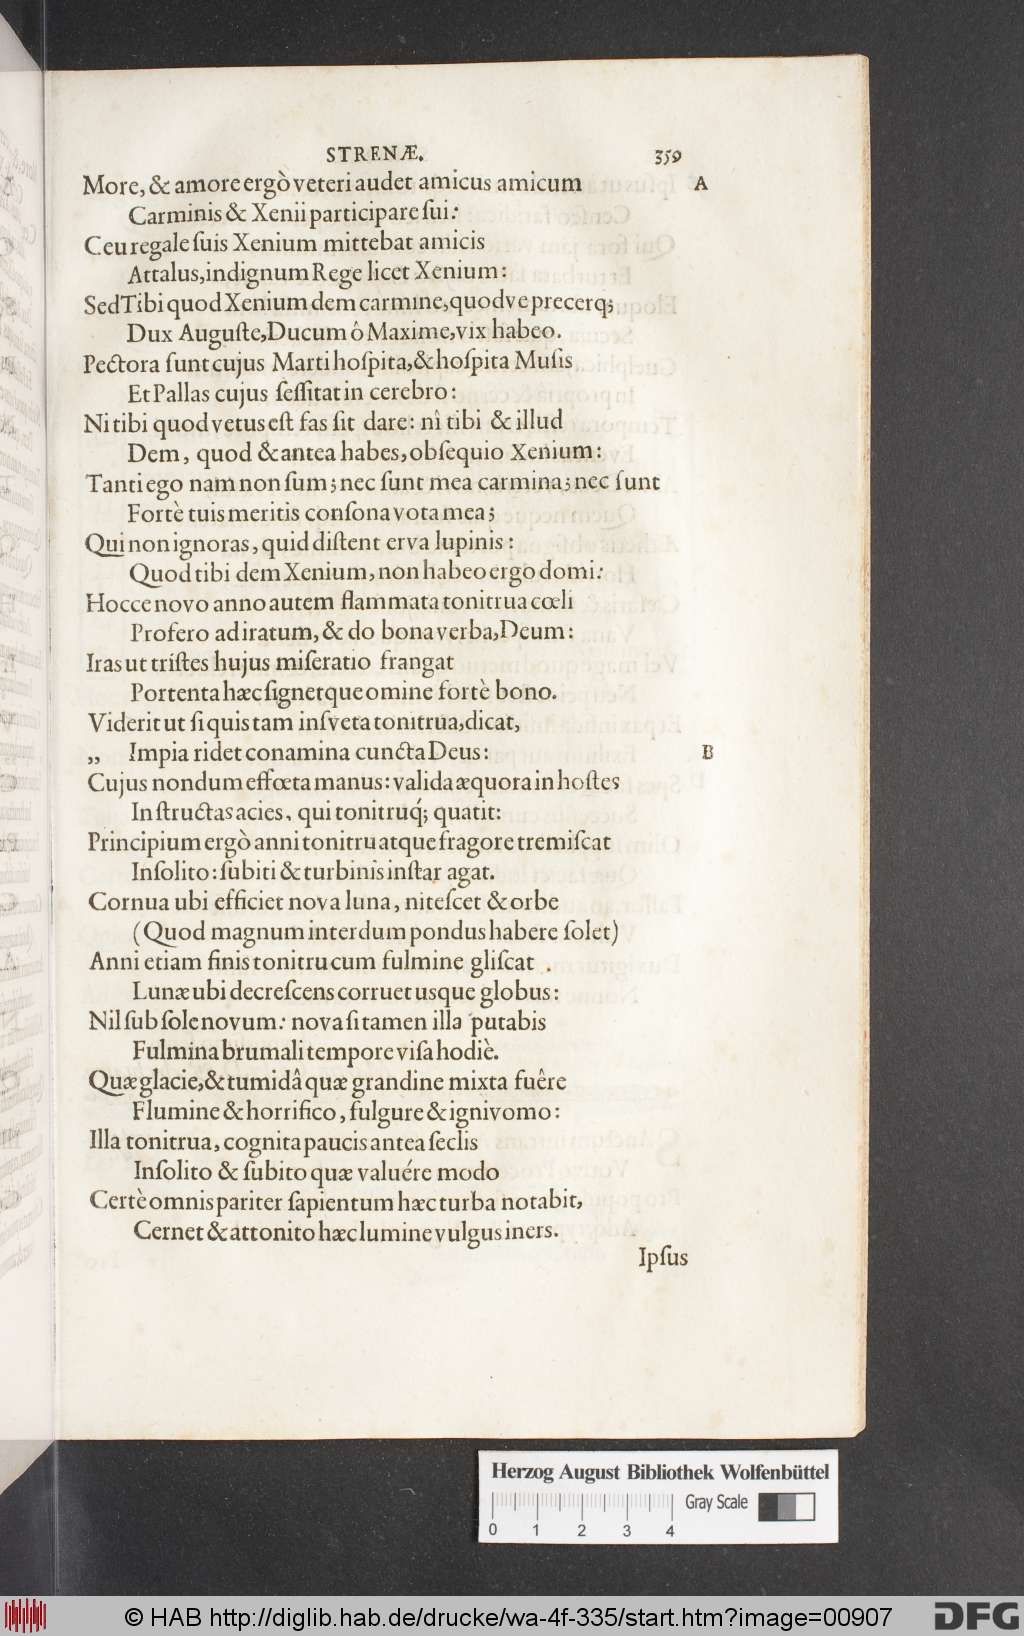 STRENÆ. 359
More, & amore ergò veteri audet amicus amicum A
Carminis & Xenii participare ſui:
Ceu regale ſuis Xenium mittebat amicis
Attalus, indignum Rege licet Xenium:
Sed Tibi quod Xenium dem carmine, quodve precerq;
Dux Auguſte, Ducum ô Maxime, vix habeo.
Pectora ſunt cujus Marti hoſpita, & hoſpita Muſis
Et Pallas cujus ſeſſitat in cerebro:
Ni tibi quod vetus eſt fas ſit dare: nî tibi & illud
Dem, quod & antea habes, obſequio Xenium:
Tanti ego nam non ſum; nec ſunt mea carmina; nec ſunt
Fortè tuis meritis conſona vota mea;
Qui non ignoras, quid diſtent erva lupinis:
Quod tibi dem Xenium, non habeo ergo domi:
Hocce novo anno autem flammata tonitrua cœli
Profero ad iratum, & do bona verba, Deum:
Iras ut triſtes hujus miſeratio frangat
Portenta hæc ſignetque omine fortè bono.
Viderit ut ſi quis tam inſveta tonitrua, dicat,
„ Impia ridet conamina cuncta Deus: B
Cujus nondum effœta manus: valida æquora in hoſtes
Inſtructas acies, qui tonitruq́; quatit:
Principium ergò anni tonitru atque fragore tremiſcat
Inſolito: ſubiti & turbinis inſtar agat.
Cornua ubi efficiet nova luna, niteſcet & orbe
(Quod magnum interdum pondus habere ſolet)
Anni etiam finis tonitru cum fulmine gliſcat.
Lunæ ubi decreſcens corruet usque globus:
Nil ſub ſole novum: nova ſi tamen illa putabis
Fulmina brumali tempore viſa hodiè.
Quæ glacie, & tumidâ quæ grandine mixta fuêre
Flumine & horrifico, fulgure & ignivomo:
Illa tonitrua, cognita paucis antea ſeclis
Inſolito & ſubito quæ valuére modo
Certè omnis pariter ſapientum hæc turba notabit,
Cernet & attonito hæc lumine vulgus iners.
Ipſus
Herzog August Bibliothek Wolfenbüttel
Gray Scale
0 1 2 3 4
© HAB http://diglib.hab.de/drucke/wa-4f-335/start.htm?image=00907
DFG